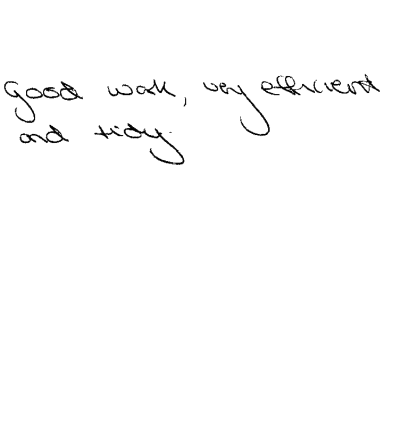 Good work, very efficient
and tidy.